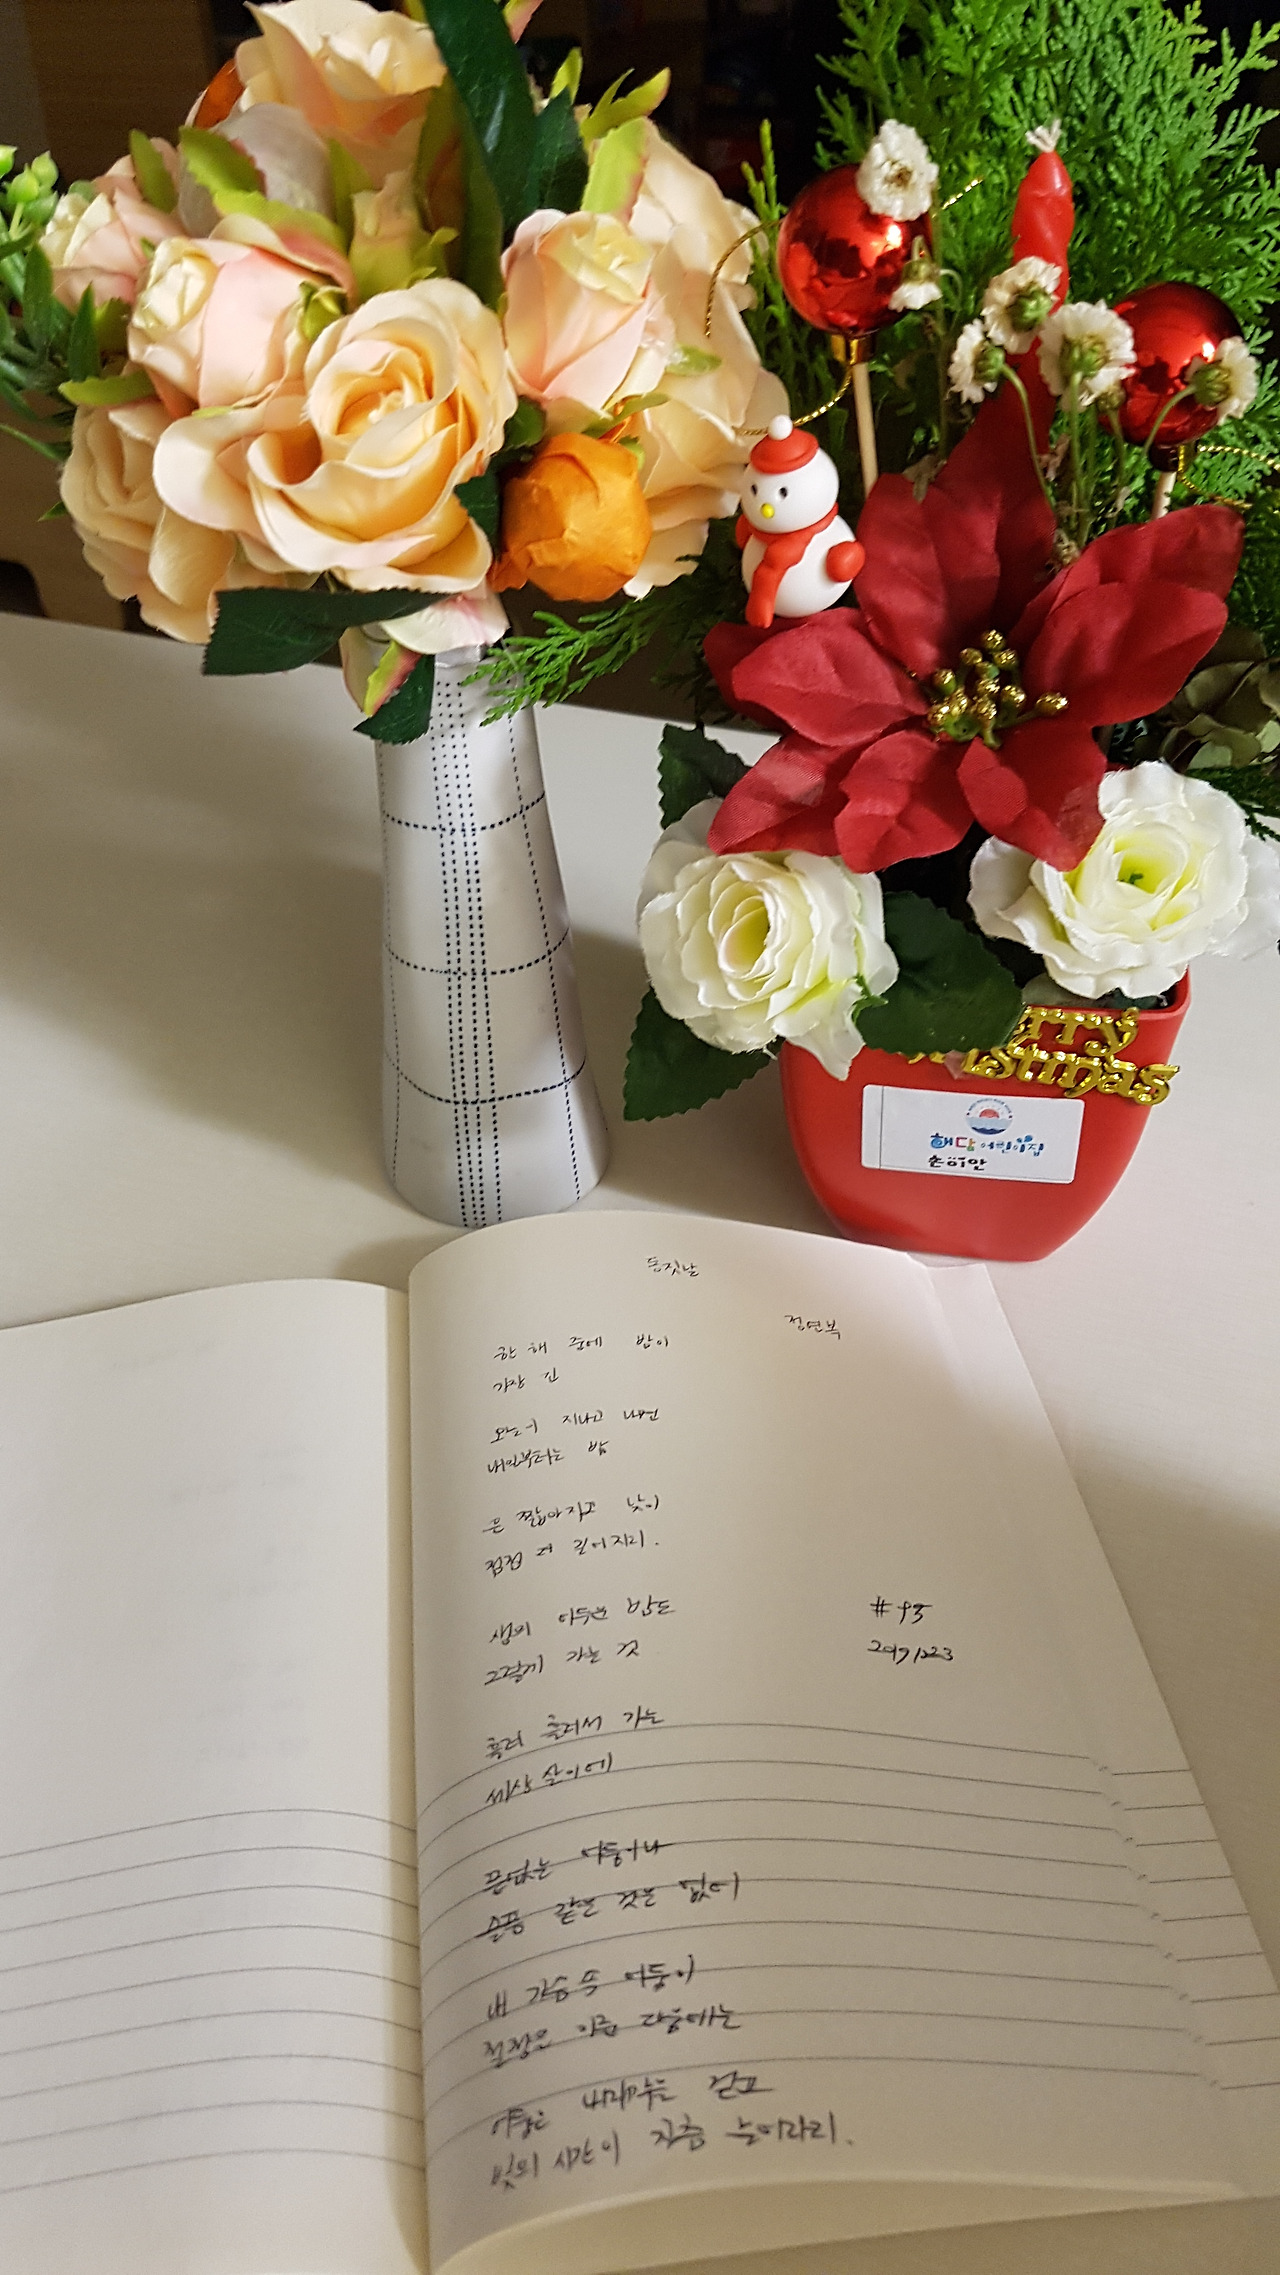 erry
ristmas
해담 어린이집
손이안
동짓날
정연복
한 해 중에 밤이
가장 긴
오늘이 지나고 나면
내일부터는 밤
은 짧아지고 낮이
점점 더 길어지리.
생의 어두운 밤도
그렇게 가는 것
흘러 흘러서 가는
세상 살이에
끝없는 어둠이나
슬픔 같은 것은 없어
내 가슴 속 어둠이
절정에 이른 다음에는
어둠은 내리막길 걷고
빛의 시간이 차츰 늘어나리.
#95
20191223